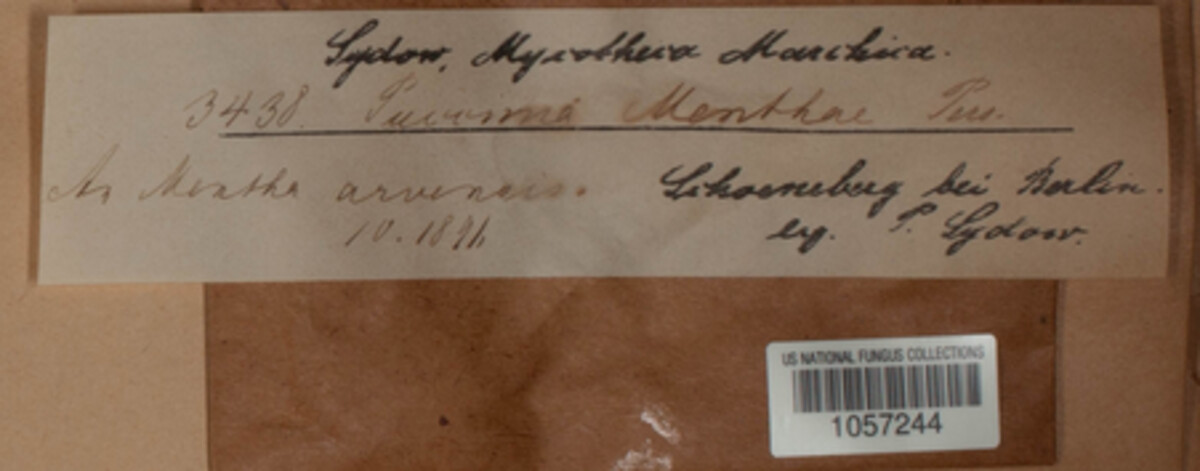 Sydow, Mycotheca Marchica.
3438. Puccinia Menthae Pers.
An Mentha arvensis.
10.1891.
Schoeneberg bei Berlin.
leg. P. Sydow.
US NATIONAL FUNGUS COLLECTIONS
1057244